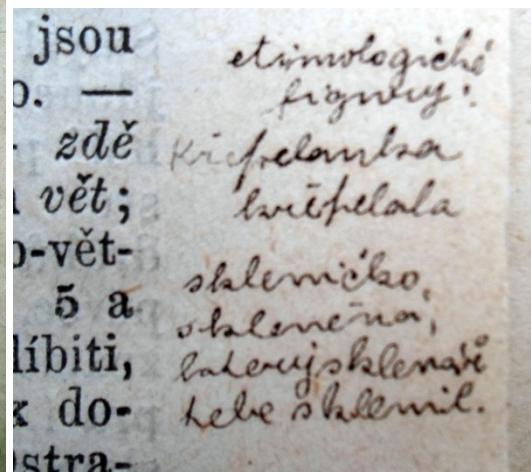 jsou
o. —
zdě
vět;
o-vět-
5 a
líbiti,
do-
ostra-
etimologické
figury:
Křepelanka
křepelala
skleničko,
skleněná,
kterýj sklenář
tebe sklenil.